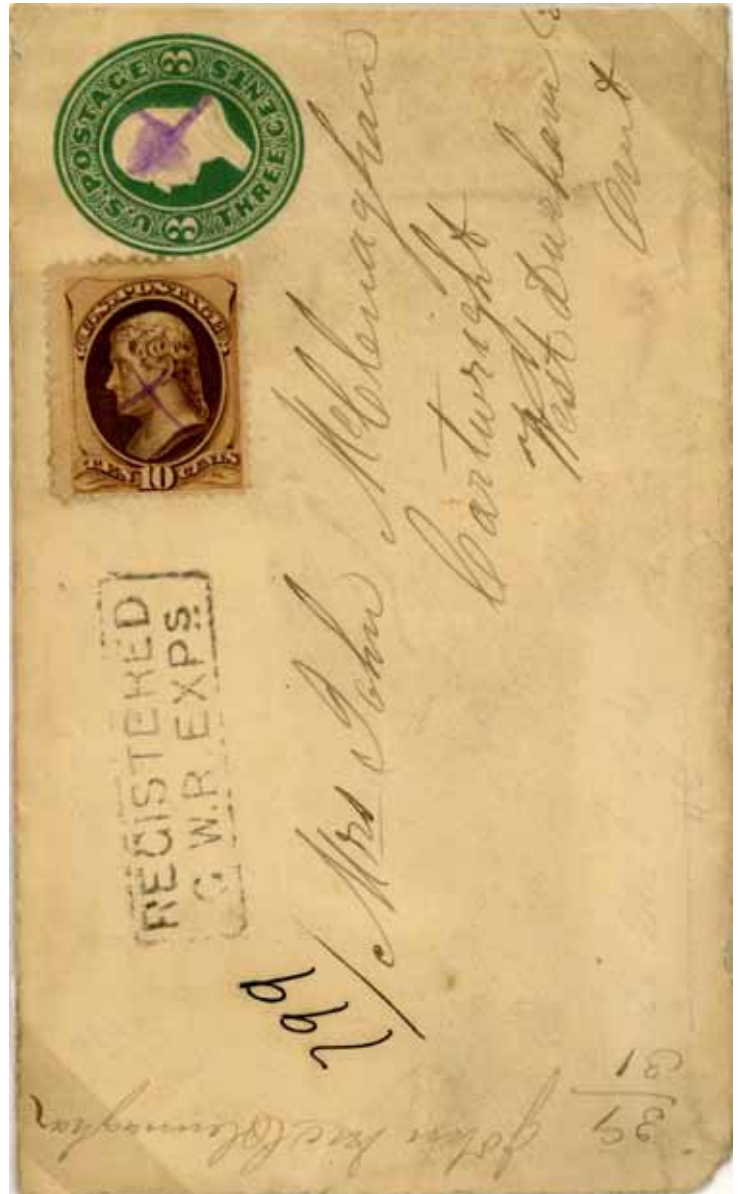 U.S. POSTAGE
3 3
THREE CENTS
U.S. POSTAGE
TEN 10 CENTS
REGISTERED
G.W.R. EXPS.
799
Mrs John McClenaghan
Cartwright
West Durham
Ont
John McClennaghan
31